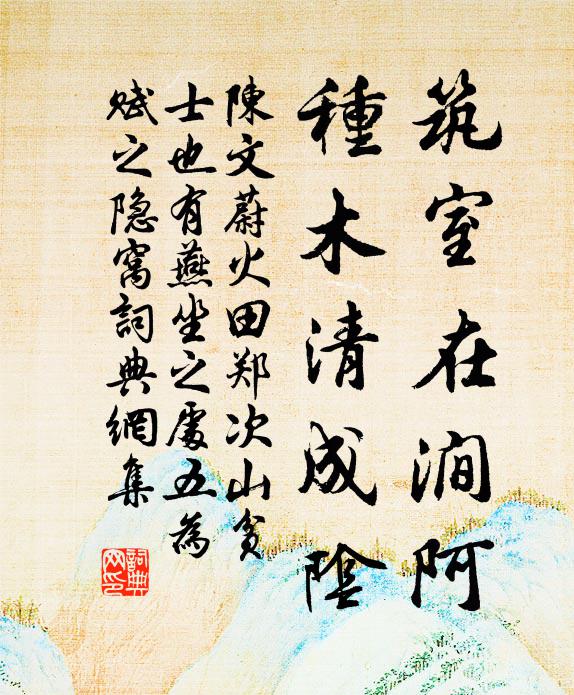 筑室在涧阿
種木清成陰
陳文蔚火田郑次山貧
士也有燕坐之處五為
赋之隐窩詞典網集
詞典网印